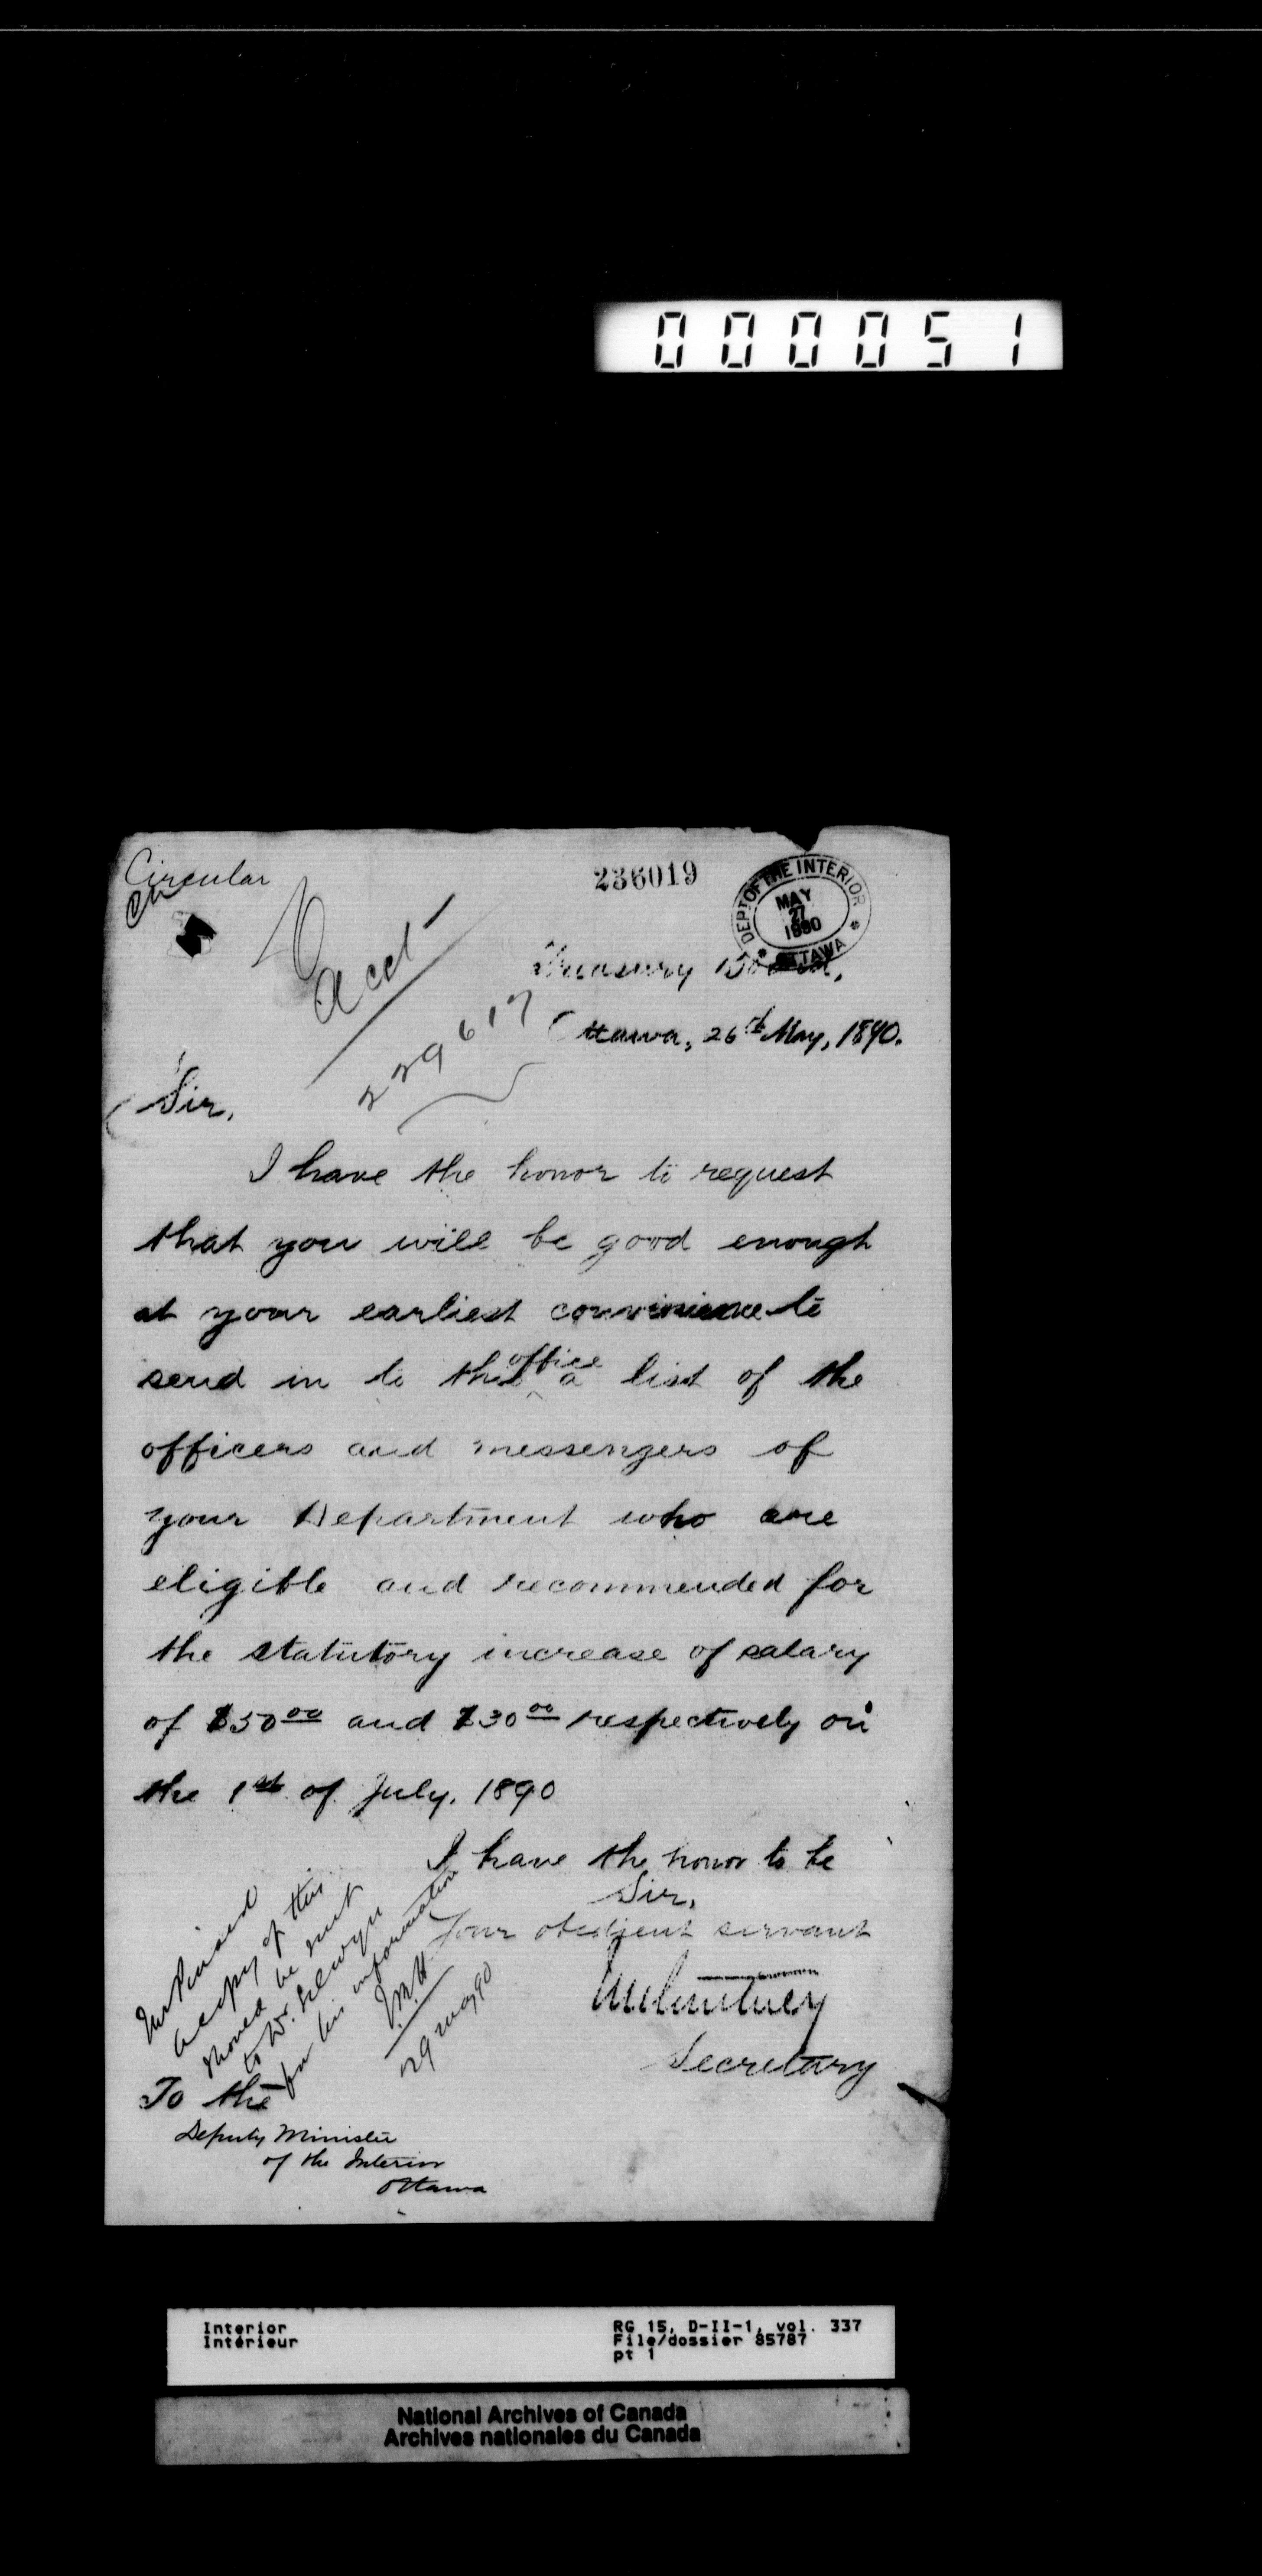 000051
Circular
236019
DEPT OF THE INTERIOR
MAY
27
1890
OTTAWA
Acct
Treasury Board,
229617
Ottawa, 26th May, 1890.
Sir,
I have the honor to request
that you will be good enough
at your earliest convenience to
send in to this office a list of the
officers and messengers of
your Department who are
eligible and recommended for
the statutory increase of salary
of $50 00 and $30 00 respectively on
the 1st of July, 1890
I have the honor to be
Sir,
Your obedient servant
Secretary
a copy of this
should be sent
to Dr. Selwyn
for his information
29 May 90
To the
Deputy Minister
of the Interior
Ottawa
Interior
Intérieur
RG 15, D-II-1, vol. 337
File/dossier 85787
pt 1
National Archives of Canada
Archives nationales du Canada